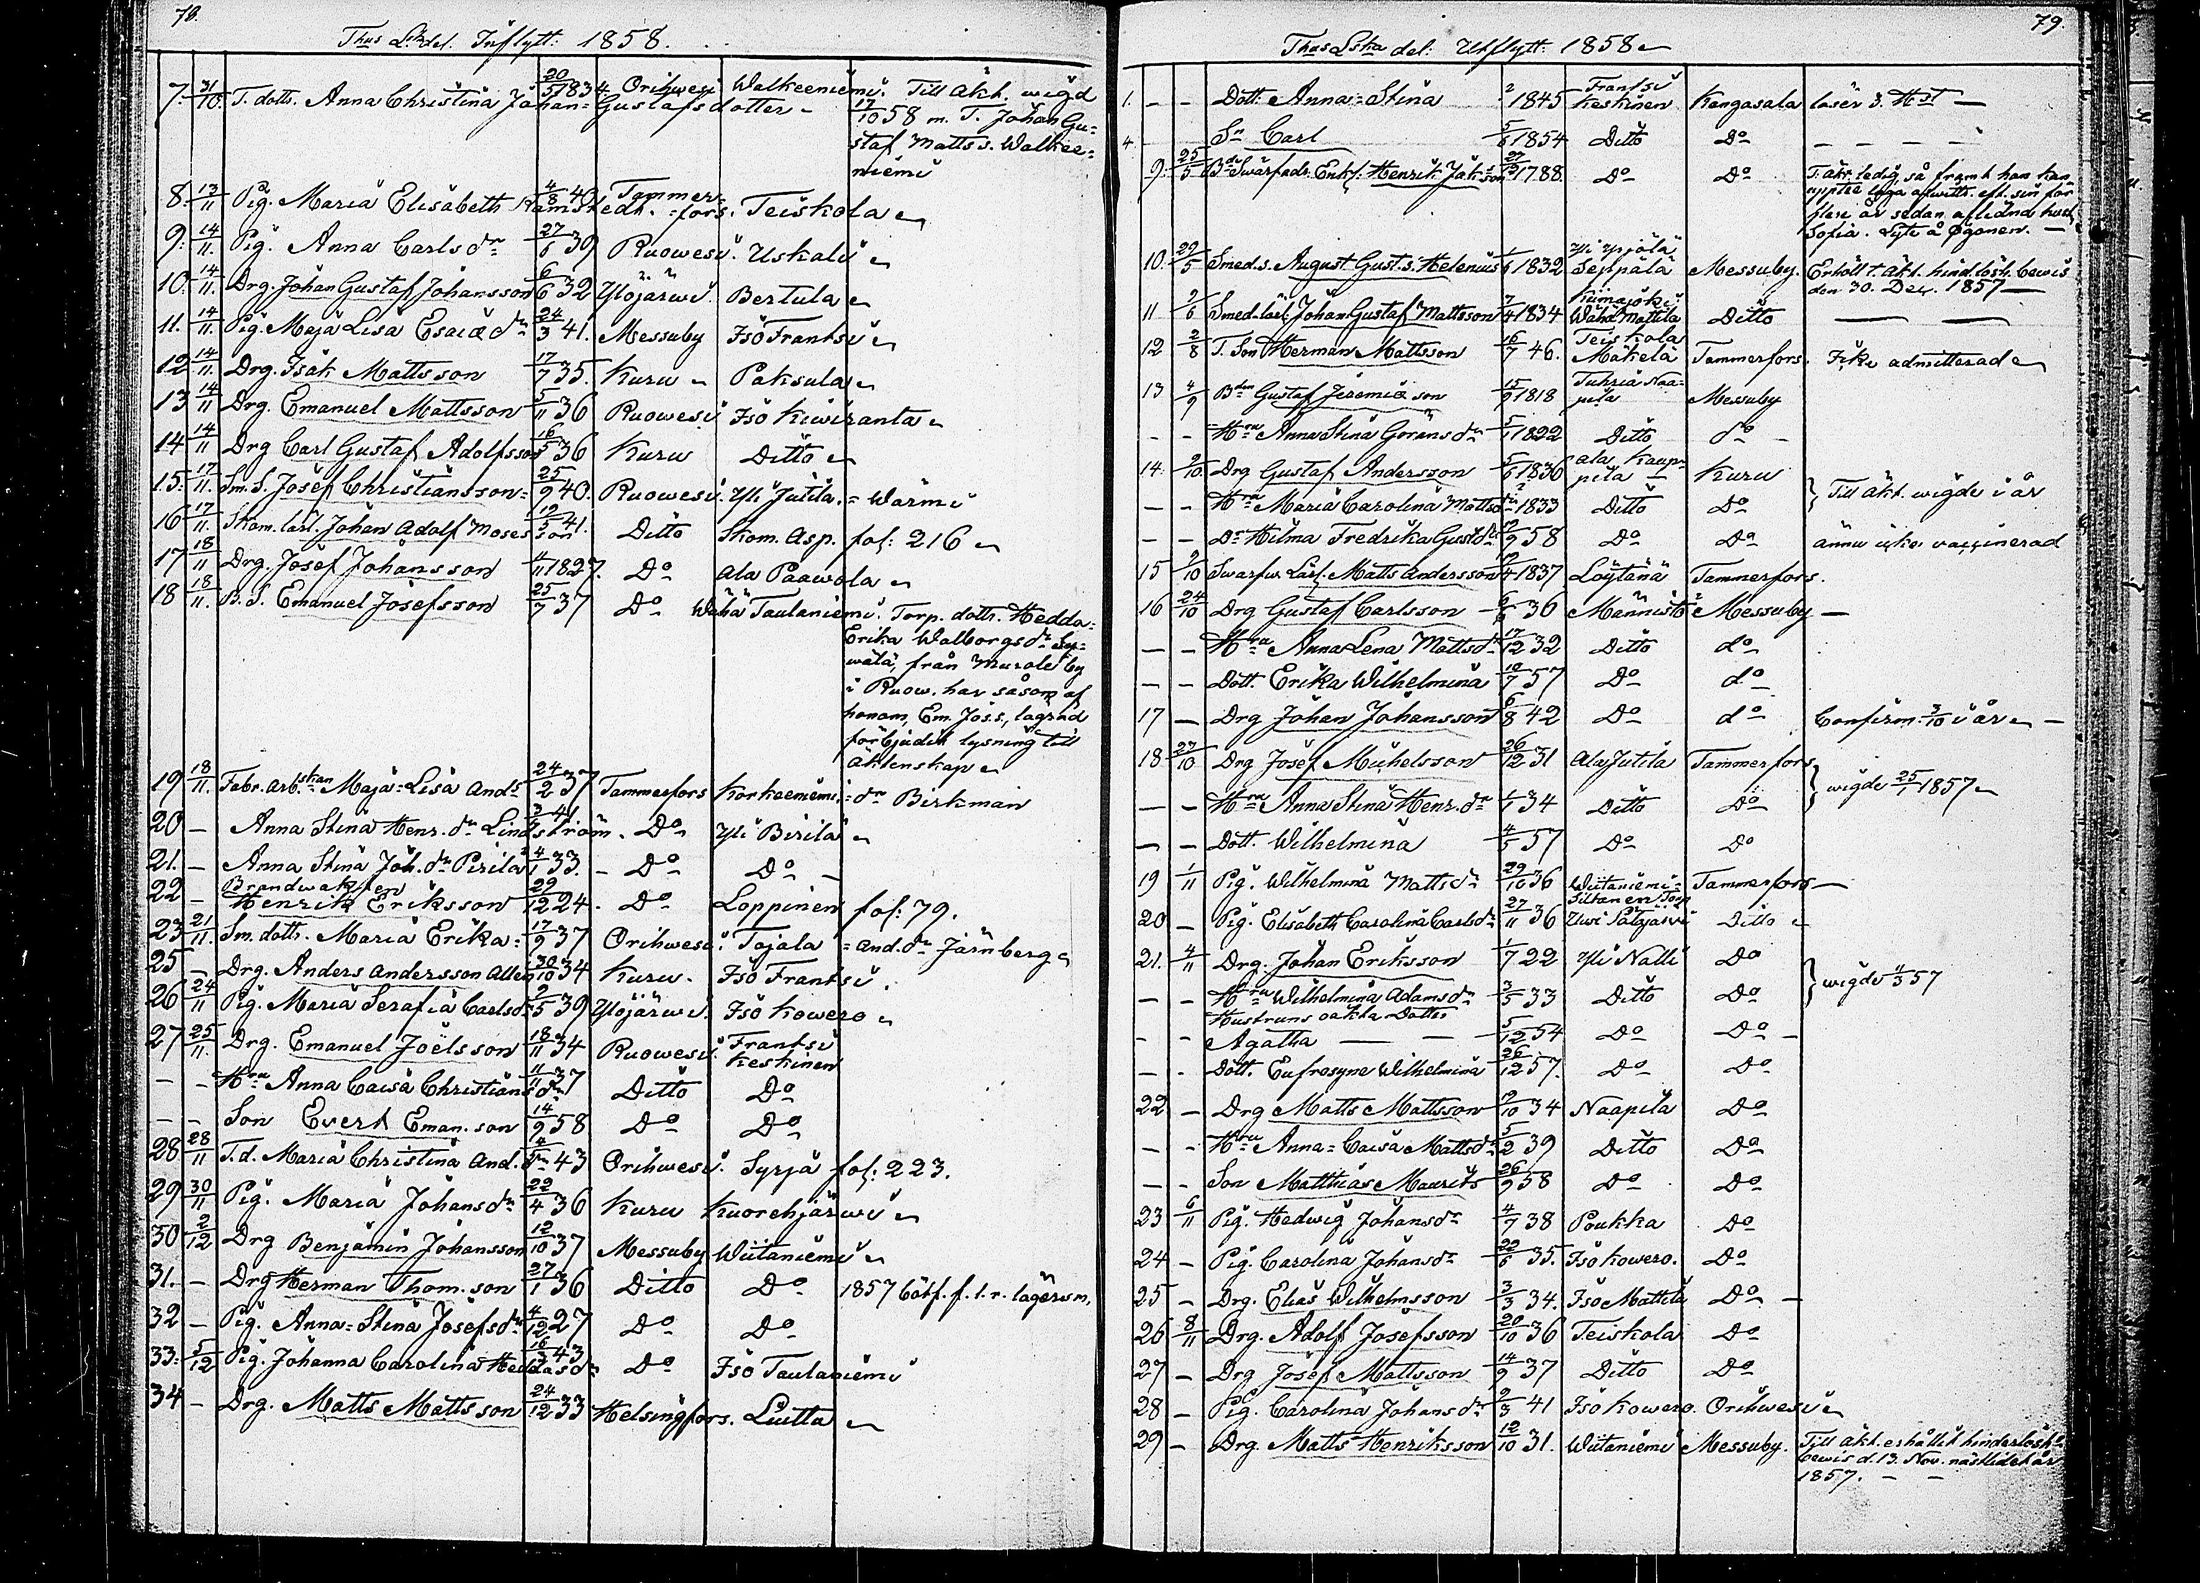 78.
Thus Lska del. Inflytt: 1858.
7. 31/10. T. dottr. Anna Christina Johan= 20/5 1834. Orihwesi Walkeeniemi. Till Äkt. wigd
Gustafsdotter 17/10 58 m. T. Johan Gu=
staf Matts s. Walkee=
niemi
8. 13/11 Pig. Maria Elisabeth Ramstedt. 4/8 43 Tammer=fors. Teiskola
9. 14/11. Pig. Anna Carlsdr 27/6 39 Ruowesi. Uskali
10. 14/11. Drg. Johan Gustaf Johansson 6/6 32 Ylöjärwi Bertula
11. 14/11. Pig. Maja Lisa Esaiædr 24/3 41. Messuby Iso Frantsi
12 14/11. Drg. Isak Mattsson 17/7 35. Kuru Paksula
13 14/11 Drg. Emanuel Mattsson 5/11 36 Ruowesi Iso Kiwiranta
14 14/11 Drg Carl Gustaf Adolfsson 16/5 36 Kuru Ditto
15. 17/11. Sm. S. Josef Christiansson= 25/9 40. Ruowesi. Yli Jutila. =Warmi
16 17/11. Skom. lärl. Johan Adolf Mosesson 19/5 41. Ditto Skom. Asp. fol: 216
17 18/11 Drg. Josef Johansson 4/11 1827. Do Ala Paawola
18 18/11. B. S. Emanuel Josefsson 25/7 37 Do Wähä Taulaniemi. Torp. dottr. Hedda=
Erika Walborgsdr Sy=
wälä, från Murole by
i Ruow. har såsom af
honom, Em. Jos.s., lägrad
förbjudit lysning till
äktenskap
19 18/11. Fabr. arb.skan Maja=Lisa And= 24/2 37 Tammerfors Korkeeniemi, =dr Birkman
20 – Anna Stina Henr.dr Lindström. 3/4 41 Do Yli Birilä
21. – Anna Stina Joh.dr Pirilä 4/1 33. Do Do
22 – Brandwakten
Henrik Eriksson 29/12 24. Do Loppinen fol: 79.
23 21/11. Sm. dottr. Maria Erika= 17/9 37 Orihwesi. Tajala =And.dr Järnberg
25 – Drg. Anders Andersson Allen 30/10 34 Kuru. Iso Frantsi.
26 24/11 Pig. Maria Serafia Carlsdr 2/5 39 Ylöjärwi. Iso Kowero
27 25/11. Drg. Emanuel Joelsson 18/11 34 Ruowesi. Frantsi Keskinen
– – Hru Anna Caisa Christiansdr 11/11 37 Ditto Do
– – Son Evert Eman. son 14/9 58 Do Do
28 28/11 T. d. Maria Christina And. dr 43 Orihwesi. Syrjä fol: 223.
29 30/11 Pig. Maria Johansdr 22/4 36 Kuru Kuorehjärwi
30 2/12 Drg Benjamin Johansson 12/10 37 Messuby Wiitaniemi
31. – Drg Herman Thom. son 27/1 36 Ditto Do 1857 bötf. f. l. r. lägersm.
32 – Pig. Anna=Stina Josefsdr 4/12 27 Do Do
33. 5/12 Pig. Johanna Carolina Heddasdr 16/3 43 Do Iso Taulaniemi
34 – Drg. Matts Mattsson 24/12 33 Helsingfors. Liutta
79.
Thus Lska del: Utflytt: 1858
1. – – Dott. Anna=Stina 1845 Frantsi Keskinen Kangasala läser 3. Hst
4. Sn Carl 5/6 1854 Ditto Do
9. 25/5 Bde Swarfadr. Enkl. Henrik Jaksson 27/12 1788. Do Do T. äkt. ledig, så framt han kan
fol. sin för
flere år sedan aflidna hust.
Sofia. Lyte å Ögonen.
10. 29/5 Smed. s. August Gust. s. Helenius 1/6 1832 Yli Ypjölä Seppälä Messuby. Erhöll t. äkt. hind.lösh. bewis
den 30. Dec. 1857
11 2/6 Smed. lärl. Johan Gustaf Mattsson 7/4 1834 Kiimajoki Wähä Mattila Ditto
12 2/8 T. Son Herman Mattsson 16/7 46. Teiskola Mäkelä Tammerfors. Icke admitterad
13 4/9 Bden Gustaf Jeremiæ son 15/9 1818 Tuhria Naa=pila Messuby
– – Hru Anna Stina Göransdr 5/1 1822 Ditto do
14. 2/10 Drg Gustaf Andersson 5/6 1836 Ala Kaup=pila Kuru
Till äkt. wigde i år
– – Hru Maria Carolina Mattsdr 1833 Ditto Do
– – Dr Hilma Fredrika Gustdr 12/9 58 Do Do ännu icke vaccinerad
15 2/10 Swarfw. Lärl. Matts Andersson 12/4 1837 Löytänä Tammerfors.
16 24/10 Drg Gustaf Carlsson 6/6 36 Männistö Messuby
– – Hru Anna Lena Mattsdr 17/12 32 Ditto do
– – Dott. Erika Wilhelmina 10/7 57 Do do
17 – Drg Johan Johansson 6/8 42 Do do Confirm. 3/10 i år
18 27/10 Drg Josef Michelsson 26/12 31 Ala Jutila Tammerfors
wigde 25/1 1857
– – Hru Anna Stina Henr.dr 1/1 34 Ditto Do
– – Dott. Wilhelmina 4/5 57 Do Do
19 1/11 Pig. Wilhelmina Mattsdr 29/10 36 Wiitaniemi= Tammerfors
20 – Pig. Elisabeth Carolina Carlsdr 27/11 36 Siltanen Torp Ditto
21. 4/11 Drg. Johan Eriksson 1/7 22 Yli Nalli Do
wigde 4/3 57
– – Hru Wilhelmina Adamsdr 3/5 33 Ditto Do
Hustruns oäkta Dotter
– – Agatha 5/12 54 Do Do
– – Dott. Eufrosyne Wilhelmina 26/12 57. Do Do
22 – Drg Matts Mattsson 12/10 34 Naapila Do
– – Hru Anna=Caisa Mattsdr 5/2 39 Ditto Do
– – Son Matthias Maurits 26/9 58 Do Do
23 6/11 Pig. Hedwig Johansdr 4/7 38 Poukka Do
24 – Pig. Carolina Johansdr 22/6 35. Iso Kowero. Do
25 – Drg. Elias Wilhelmsson 3/3 34. Iso Mattila Do
26 8/11 Drg. Adolf Josefsson 20/10 36 Teiskola Do
27 – Drg Josef Mattsson 14/9 37 Ditto Do
28 – Pig. Carolina Johansdr 2/3 41 Iso Kowero. Orihwesi
29 – Drg. Matts Henriksson 12/10 31. Wiitaniemi Messuby. Till äkt. erhållit hinderlösh.
bewis d. 13. Nov. nästlidet år
1857.